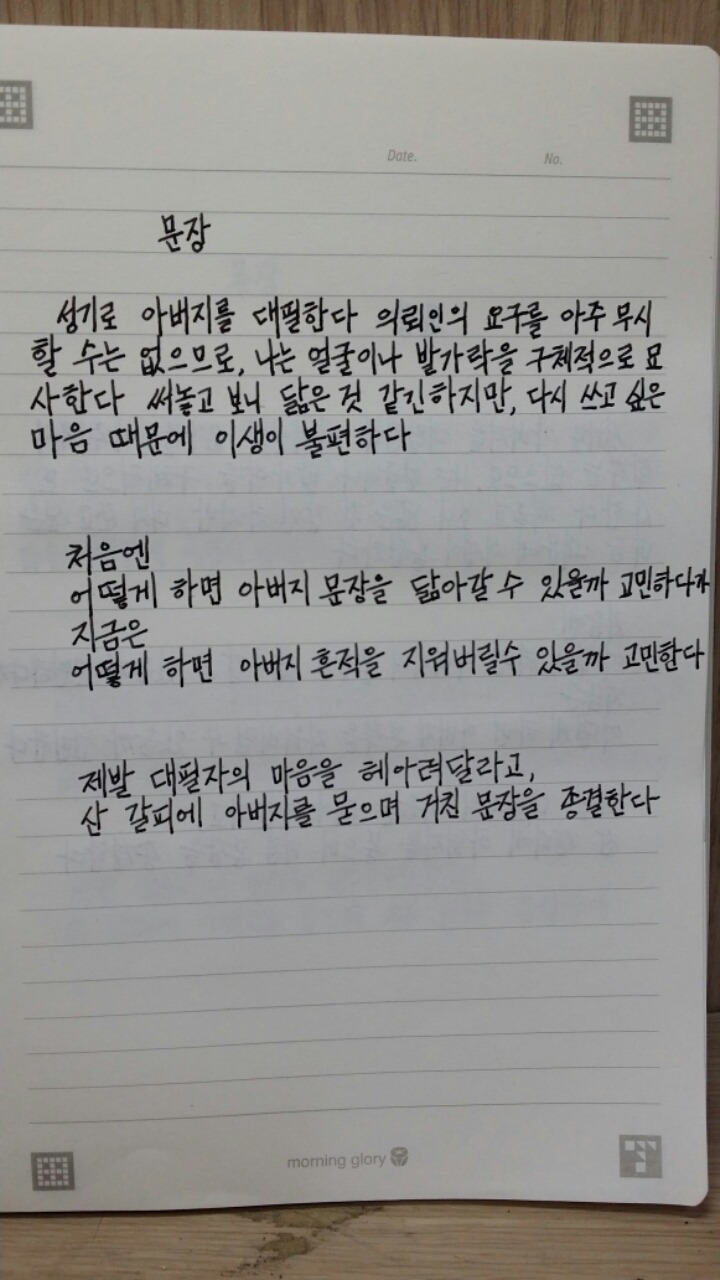 Date.
No.
문장
성기로 아버지를 대필한다 의뢰인의 요구를 아주 무시
할 수는 없으므로, 나는 얼굴이나 발가락을 구체적으로 묘
사한다 써놓고 보니 닮은 것 같긴하지만, 다시 쓰고 싶은
마음 때문에 이생이 불편하다
처음엔
어떻게 하면 아버지 문장을 닮아갈 수 있을까 고민하다가
지금은
어떻게 하면 아버지 흔적을 지워버릴수 있을까 고민한다
제발 대필자의 마음을 헤아려달라고,
산 갈피에 아버지를 묻으며 거친 문장을 종결한다
morning glory